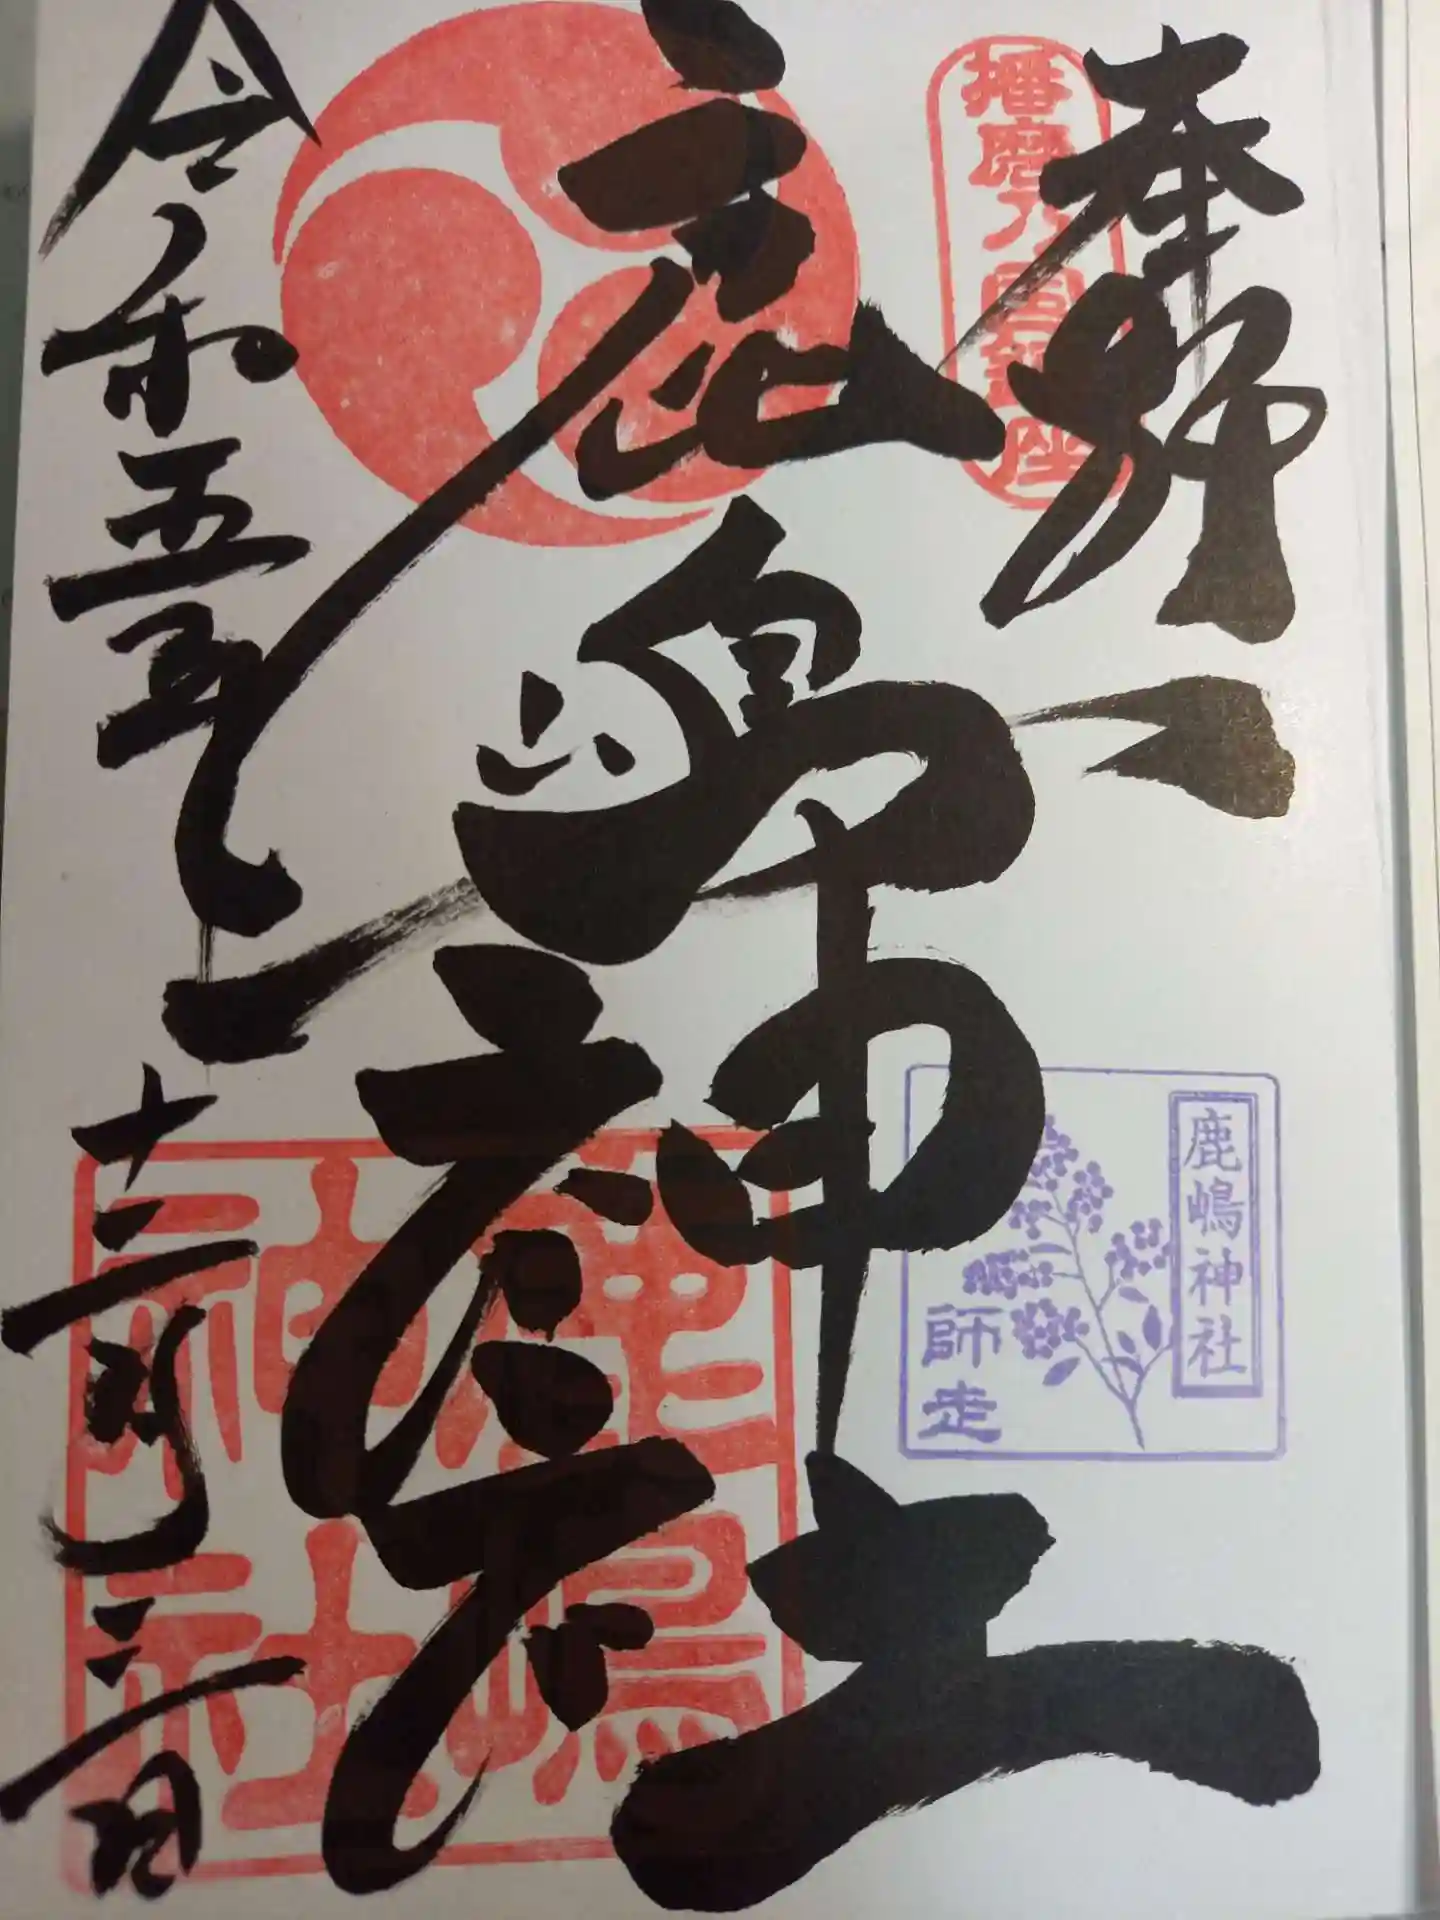 奉拝
播磨乃国鎮座
鹿嶋神社
鹿嶋神社
師走
鹿嶋神社
令和五年十二月三日